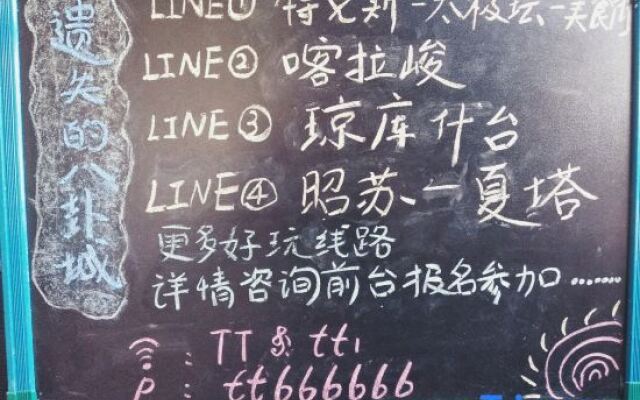 遗失的八卦城
LINE① 特克斯-太极坛-美食街
LINE② 喀拉峻
LINE③ 琼库什台
LINE④ 昭苏-夏塔
更多好玩线路
详情咨询前台报名参加……
: TT & tt1
P : tt666666